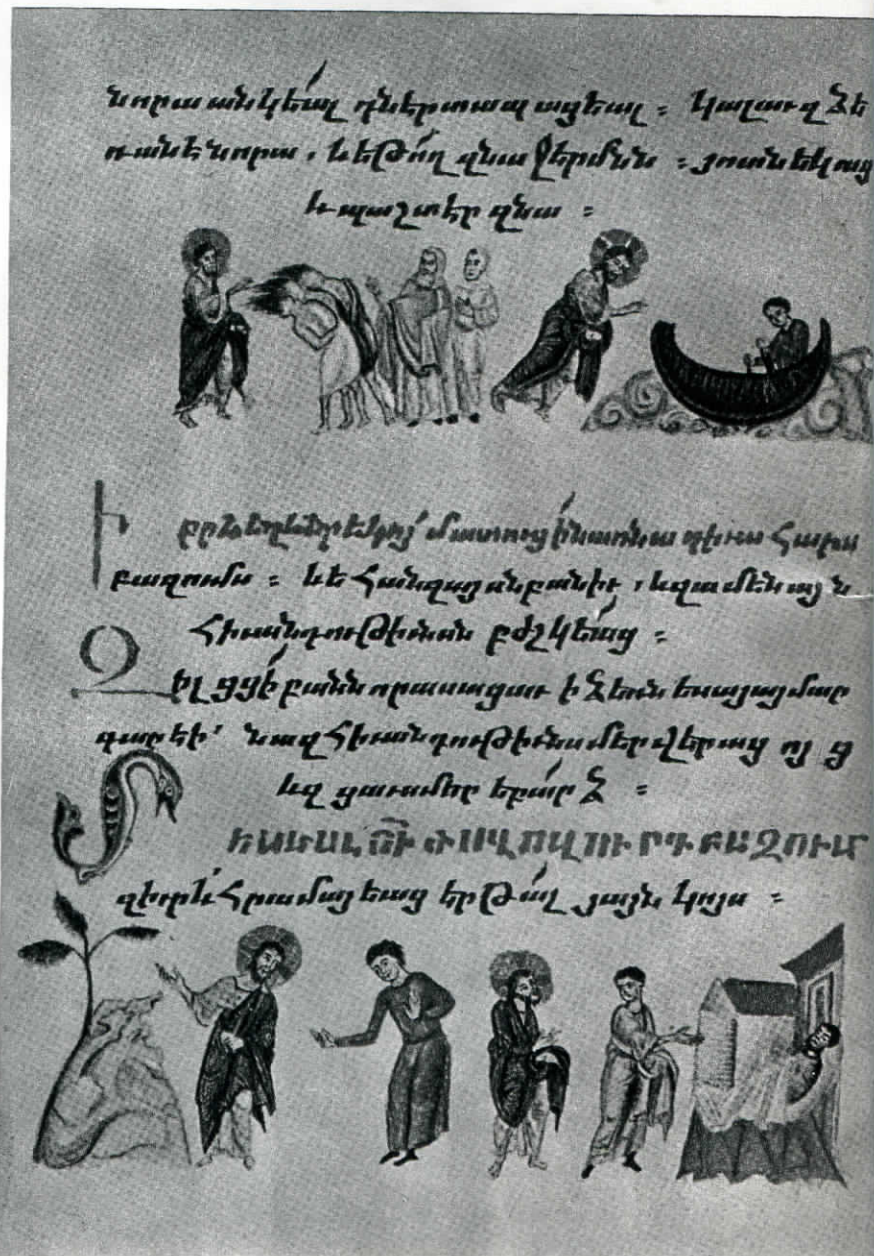 նորա անկեալ դներ տապացեալ : Կալաւ զձե
ռանէ նորա , և եթող զնա ջերմնն : յոտն եկաց
և պաշտէր զնա :
Իբրև եղև երեկոյ՛ մատուցին առ նա դիւահարս
բազումս : և եհան զայսսն բանիւ , և զամենայն
հիւանդութիւնսն բժշկեաց :
Զի լցցի բանն որ ասացաւ ի ձեռն եսայայ մար
գարէի՛ նա զհիւանդութիւնս մեր վերացոյց
և զցաւս մեր եբարձ :
ՏԵՍԵԱԼ ՅԻ ԺՈՂՈՎՈՒՐԴ ԲԱԶՈՒՄ
զիւրև հրամայեաց երթալ յայն կոյս :